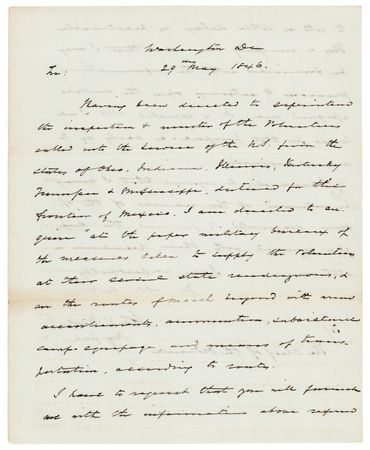 Washington Dc
29th May 1846.
Sir:
Having been directed to superintend
the inspection & muster of the Volunteers
called into the service of the U.S. from the
states of Ohio, Indiana, Illinois, Kentucky
Tennessee & Mississippi, destined for the
frontier of Mexico, I am directed to en-
quire "at the proper military bureaux of
the measures taken to supply the Volunteers
at their several state rendezvous, &
on the routes of march beyond with arms
accoutrements, ammunition, subsistence
camp equipage, and means of trans-
portation, according to routes.
I have to request that you will furnish
me with the information above required